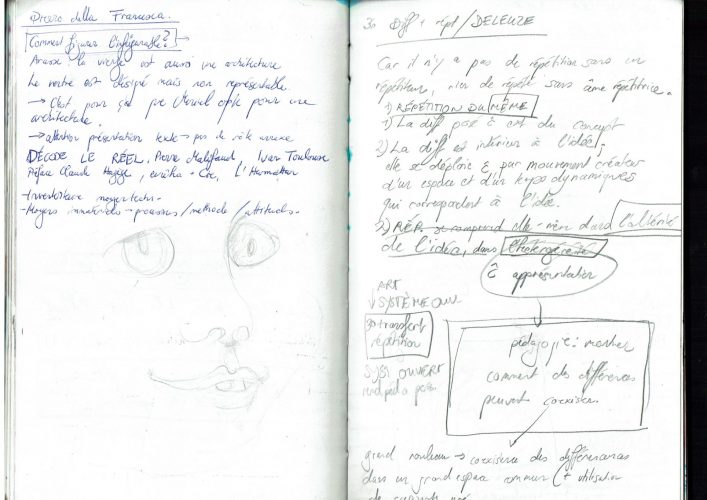 Piero della Francesca.
Comment figurer l'infigurable? →
Arasse la vierge est aussi une architecture
Le ventre est désigné mais non représentable.
→ C'est pour ça que opte pour une
architecture.
→ attention présentation texte → pas de
DÉCODER LE RÉEL, Pierre Ivan Toulouse
Préface Claude Hagège, L'Harmattan
- Inventoriare moyens techn.
- Moyens immatériels → processus/méthode/attitudes.
Diff + répét / DELEUZE
Car il n'y a pas de répétition sans un
répétiteur, rien de répété sans âme répétitrice.
1) RÉPÉTITION DU MÊME
1) La diff posé est du concept
2) La diff est intérieur à l'idée,
elle se déploie par mouvement créateur
d'un espace et d'un temps dynamiques
qui correspondent à l'idée.
2) RÉP. se comprend elle-même dans l'altérité
de l'idée, dans l'hétérogénéité
apprésentation
ART
↓ SYSTÈME OUV
transfert
répétition
SYS. OUVERT
pédagogie: montrer
comment des différences
peuvent coexister
grand rouleau → coexistence des différences
dans un grand espace commun (+ utilisation
de